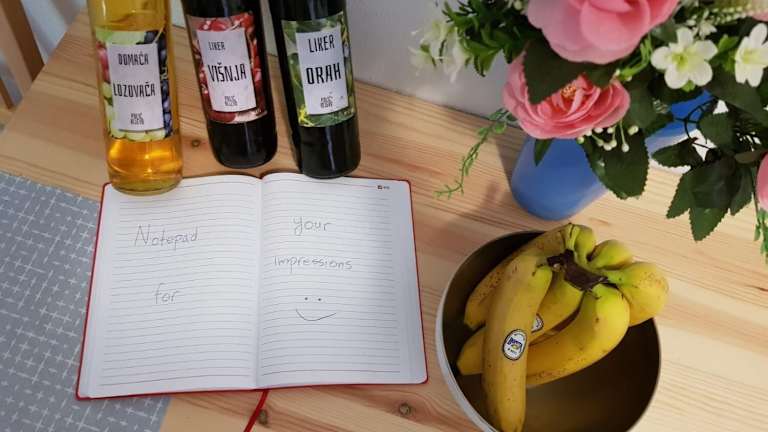 DOMAĆA
LOZOVAČA
LIKER
VIŠNJA
LIKER
ORAH
Notepad
for
your
impressions